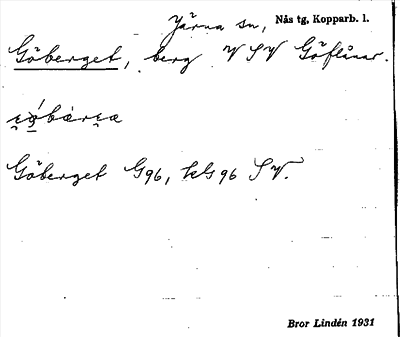 Järna sn, Nås tg, Kopparb. l.
Göberget, berg V S V Göflånar.
Göberget G96, kG96 S V.
Bror Lindén 1931